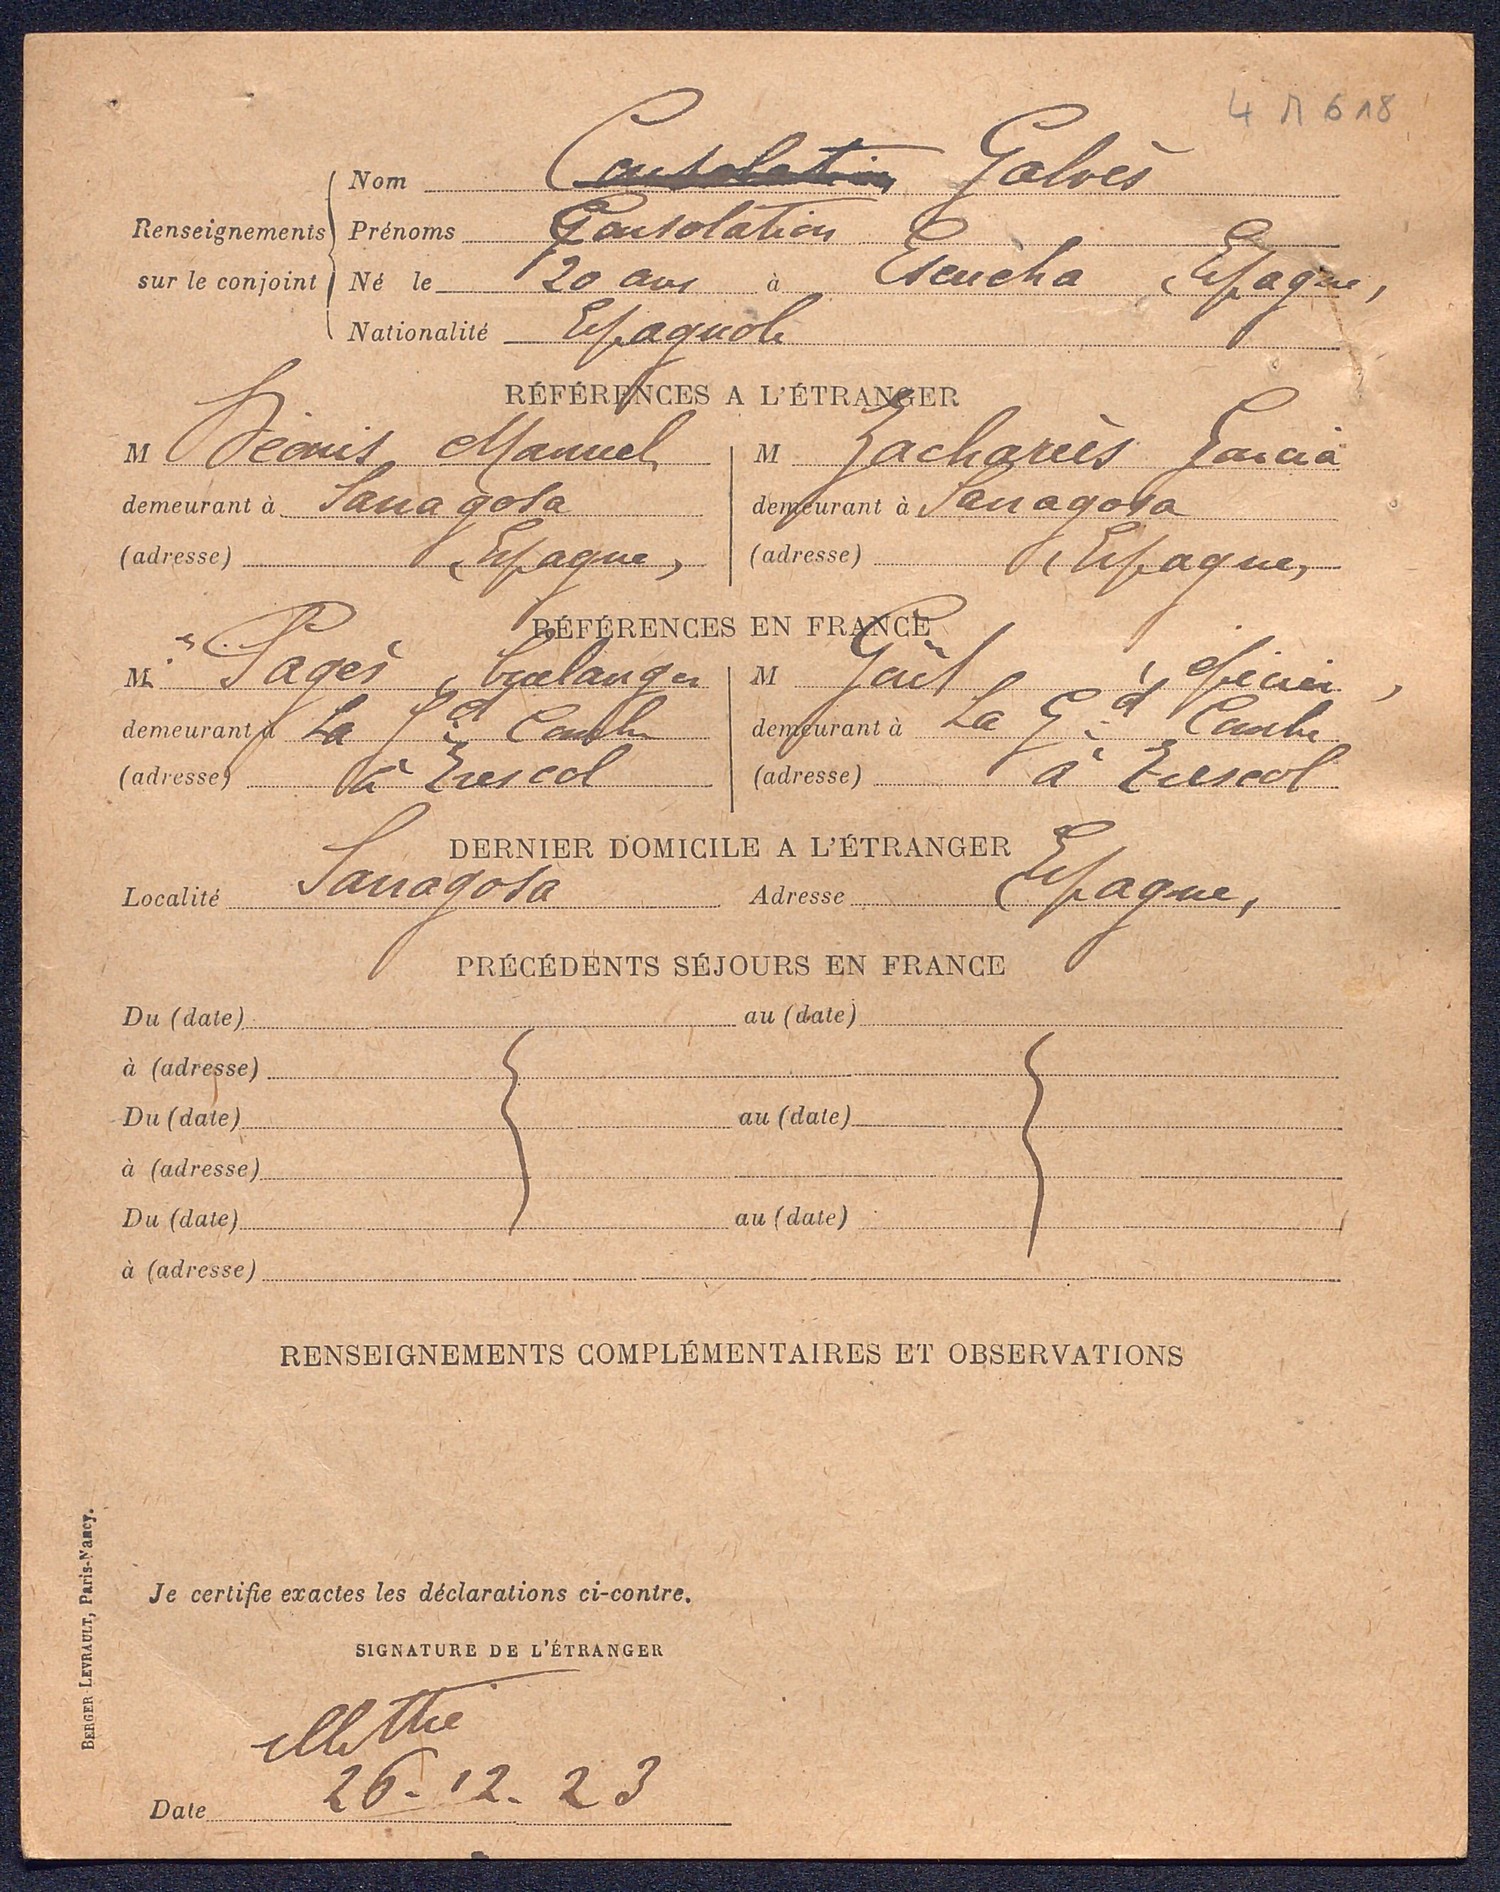 4 M 618
Nom Consolation Galvès
Renseignements Prénoms Consolation
sur le conjoint Né le 20 ans à Escucha Espagne,
Nationalité Espagnole
RÉFÉRENCES A L'ÉTRANGER
M Manuel M Zachariès Garcia
demeurant à Sarragosa demeurant à Sarragosa
(adresse) Espagne, (adresse) Espagne,
RÉFÉRENCES EN FRANCE
M. Pagès, boulanger M épicier,
demeurant à La Gd Combe demeurant à La Gd Combe
(adresse) à Trescol (adresse) à Trescol
DERNIER DOMICILE A L'ÉTRANGER
Localité Sarragosa Adresse Espagne,
PRÉCÉDENTS SÉJOURS EN FRANCE
Du (date) au (date)
à (adresse)
Du (date) au (date)
à (adresse)
Du (date) au (date)
à (adresse)
RENSEIGNEMENTS COMPLÉMENTAIRES ET OBSERVATIONS
Je certifie exactes les déclarations ci-contre.
SIGNATURE DE L'ÉTRANGER
Date 26-12-23
BERGER-LEVRAULT, Paris-Nancy.